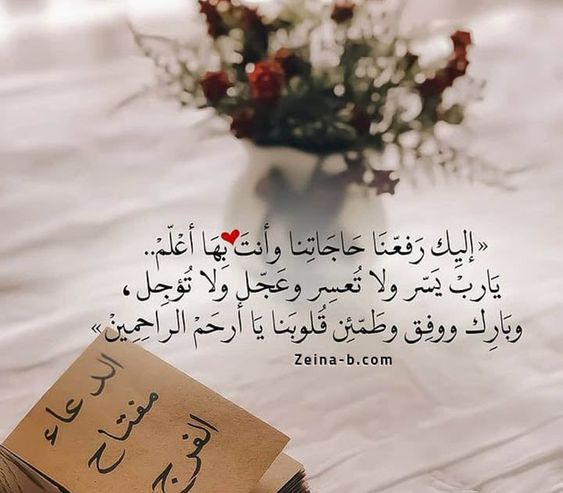 «إليك رَفعّنَا حَاجَاتِنا وأنتَ بِهَا أعْلّمْ..
يَاربْ يَسّر ولا تُعسِر وعَجّل ولا تُؤجِل،
وبَارِك ووفِق وطَمّئِن قُلوبَنا يَا أرحَمْ الراحِمِينْ»
Zeina-b.com
الدعاء
مفتاح
الفرج